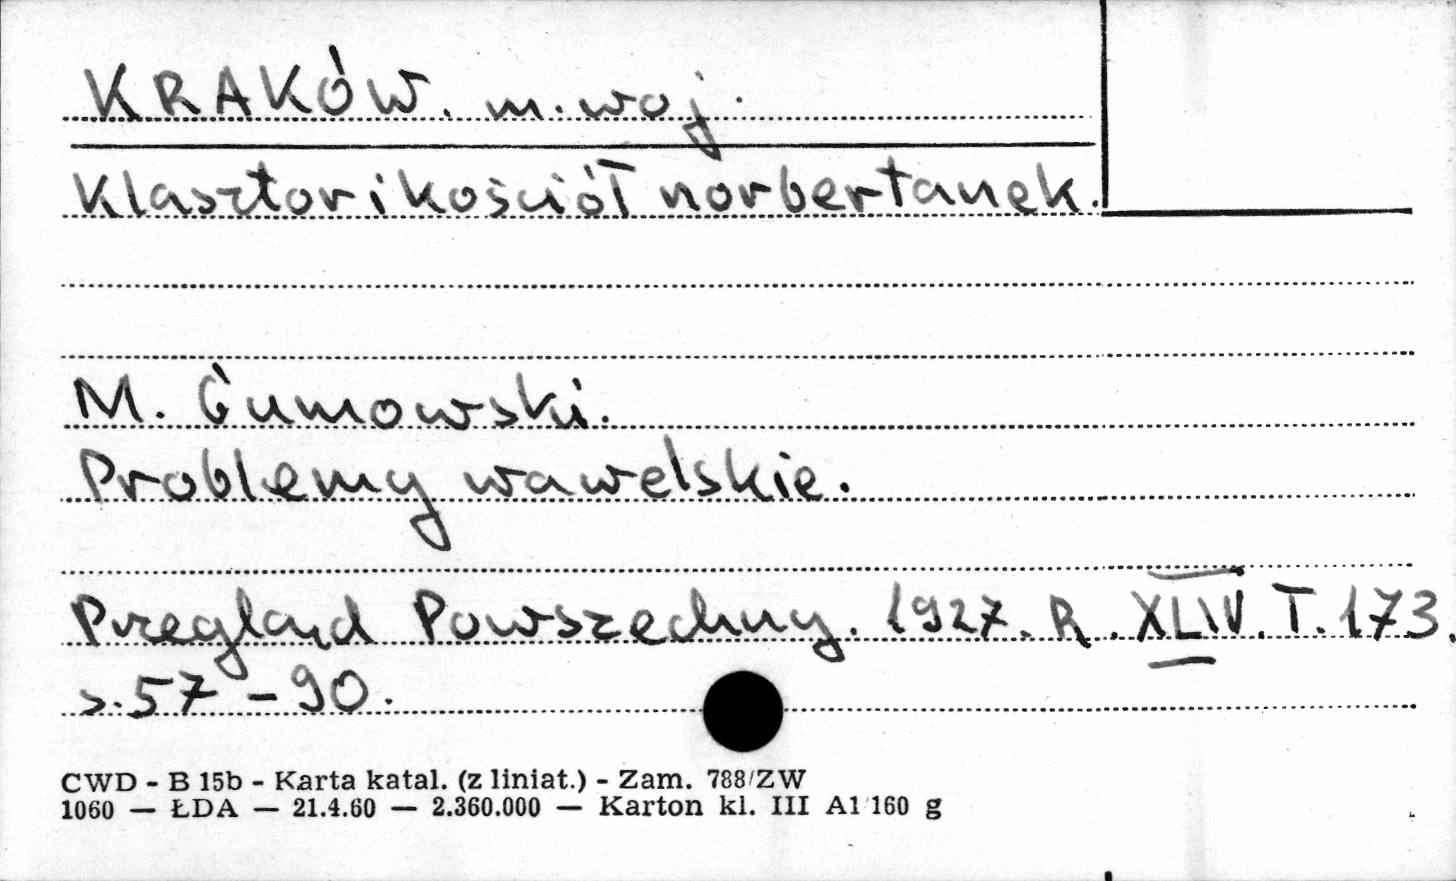 KRAKÓW. m. woj.
Klasztor i kościół norbertanek.
M. Gumowski.
Problemy wawelskie.
Przegląd Powszechny. 1927. R. XLIV. T. 173.
s. 57 - 90.
CWD - B 15b - Karta katal. (z liniat.) - Zam. 788/ZW
1060 — ŁDA — 21.4.60 — 2.360.000 — Karton kl. III A1 160 g